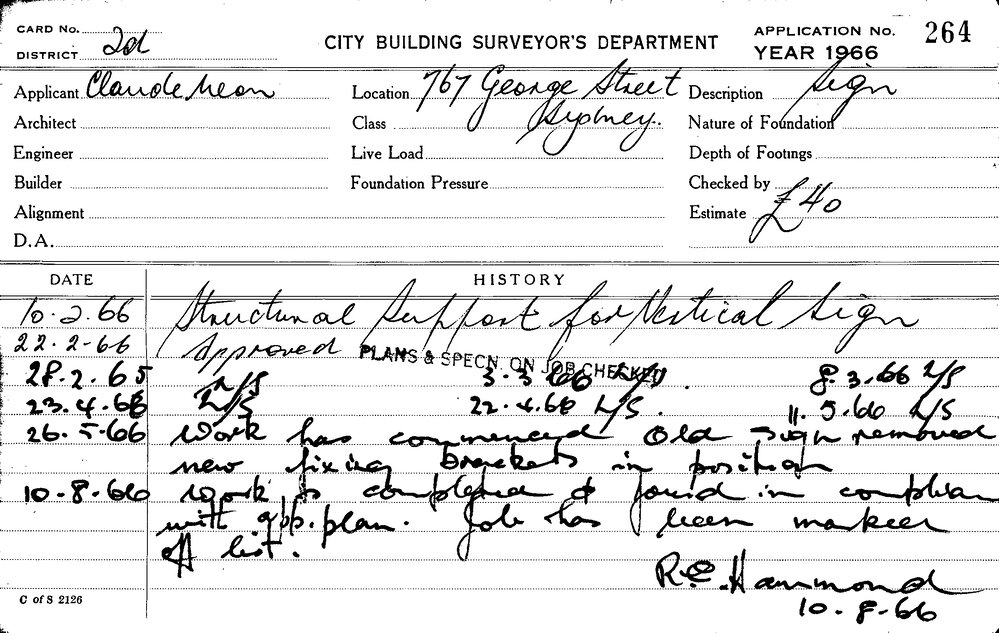 CARD No.
DISTRICT 2d
CITY BUILDING SURVEYOR'S DEPARTMENT
APPLICATION No. 264
YEAR 1966
Applicant Claude Neon
Location 767 George Street
Sydney.
Description Sign
Architect
Class
Nature of Foundation
Engineer
Live Load
Depth of Footings
Builder
Foundation Pressure
Checked by
Alignment
Estimate £40
D.A.
DATE
HISTORY
10.2.66 Structural Support for Vertical Sign
22.2-66 Approved PLANS & SPECN. ON JOB CHECKED
28.2.65 L/S 3.3.66 L/S. 8.3.66 L/S
23.4.66 L/S 22.4.66 L/S. 11.5.66 L/S
26.5.66 Work has commenced Old sign removed
new fixing brackets in position
10-8-66 Work is completed & found in
with app. plan. Job has been marked
off list.
R.C. Hammond
10-8-66
C of S 2126